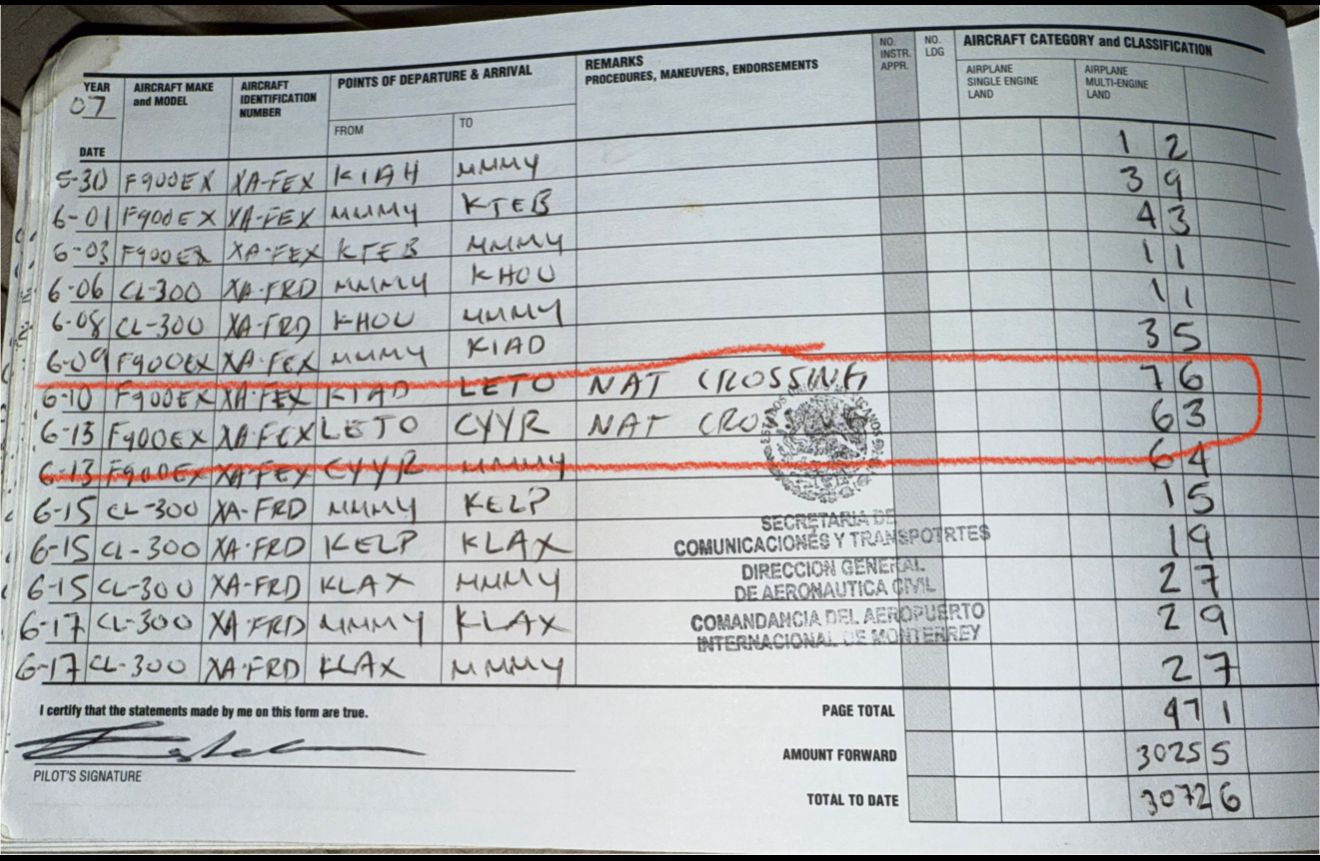 YEAR 07
AIRCRAFT MAKE and MODEL
AIRCRAFT IDENTIFICATION NUMBER
POINTS OF DEPARTURE & ARRIVAL
REMARKS
PROCEDURES, MANEUVERS, ENDORSEMENTS
NO. INSTR. APPR.
NO. LDG
AIRCRAFT CATEGORY and CLASSIFICATION
DATE
FROM
TO
AIRPLANE SINGLE ENGINE LAND
AIRPLANE MULTI-ENGINE LAND
5-30 F900EX XA-FEX KIAH MMMY 1 2
6-01 F900EX XA-FEX MMMY KTEB 3 9
6-03 F900EX XA-FEX KTEB MMMY 4 3
6-06 CL-300 XA-FRD MMMY KHOU 1 1
6-08 CL-300 XA-FRD KHOU MMMY 1 1
6-09 F900EX XA-FEX MMMY KIAD 3 5
6-10 F900EX XA-FEX KIAD LETO NAT CROSSING 7 6
6-13 F900EX XA-FEX LETO CYYR NAT CROSSING 6 3
6-13 F900EX XA-FEX CYYR MMMY 6 4
6-15 CL-300 XA-FRD MMMY KELP 1 5
6-15 CL-300 XA-FRD KELP KLAX 1 9
6-15 CL-300 XA-FRD KLAX MMMY 2 7
6-17 CL-300 XA-FRD MMMY KLAX 2 9
6-17 CL-300 XA-FRD KLAX MMMY 2 7
SECRETARIA DE
COMUNICACIONES Y TRANSPOTRTES
DIRECCION GENERAL
DE AERONAUTICA CIVIL
COMANDANCIA DEL AEROPUERTO
INTERNACIONAL DE MONTERREY
I certify that the statements made by me on this form are true.
PILOT'S SIGNATURE
PAGE TOTAL 47 1
AMOUNT FORWARD 3025 5
TOTAL TO DATE 3072 6